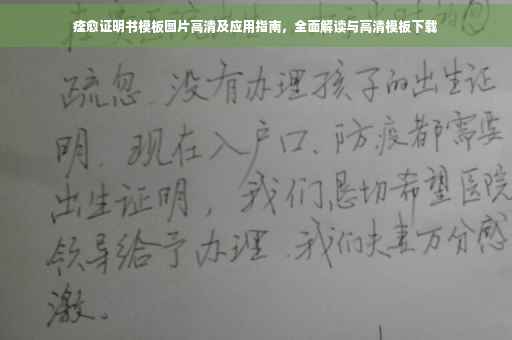 痊愈证明书模板图片高清及应用指南，全面解读与高清模板下载
疏忽、没有办理孩子的出生证
明、现在入户口、防疫都需要
出生证明，我们恳切希望医院
领导给予办理、我们夫妻万分感
激。